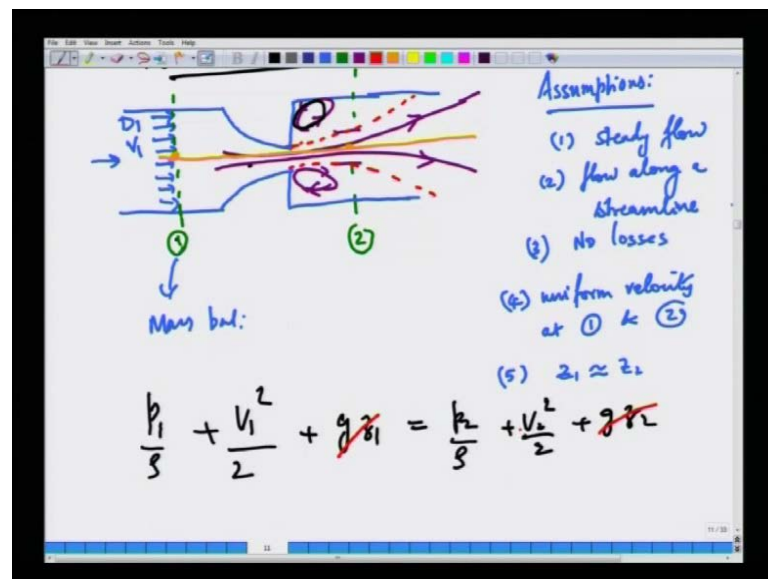 File Edit View Insert Actions Tools Help
Assumptions:
(1) steady flow
(2) flow along a
streamline
(3) No losses
(4) uniform velocity
at ① & ②
(5) z₁ ≈ z₂
D₁
V₁
① ②
Mass bal:
p₁/ρ + V₁²/2 + gz₁ = p₂/ρ + V₂²/2 + gz₂
11